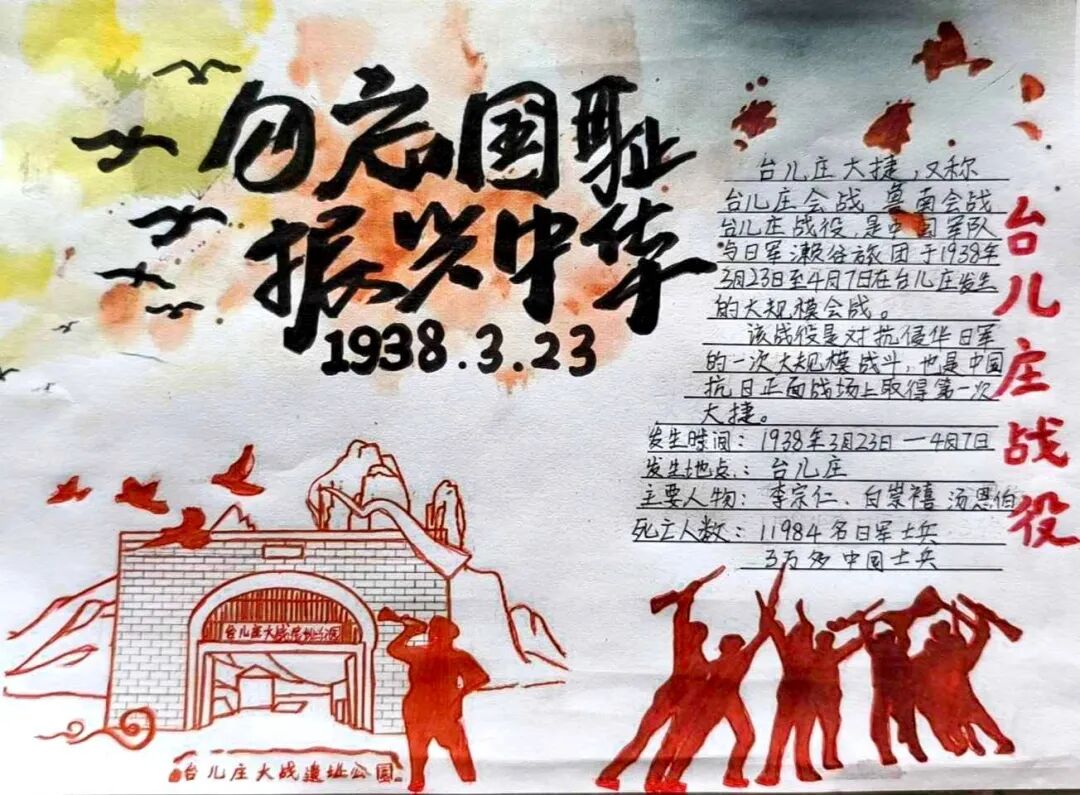 勿忘国耻
振兴中华
1938.3.23
台儿庄战役
台儿庄大捷,又称
台儿庄会战 鲁南会战
台儿庄战役,是中国军队
与日军濑谷旅团于1938年
3月23日至4月7日在台儿庄发生
的大规模会战。
该战役是对抗侵华日军
的一次大规模战斗,也是中国
抗日正面战场上取得第一次
大捷。
发生时间:1938年3月23日—4月7日
发生地点:台儿庄
主要人物:李宗仁、白崇禧 汤恩伯
死亡人数:11984名日军士兵
3万多中国士兵
台儿庄大战遗址公园
台儿庄大战遗址公园